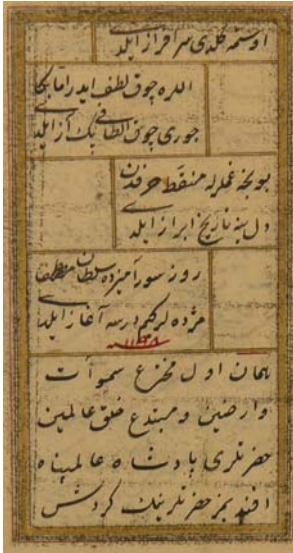 اوستمه كلدی سرافراز ایلدی
اللره چوق لطف ایدر اما بكا
جوری چوق الطافی پك آز ایلدی
غملرله منقط حرفدن
دل ینه تاریخ ابراز ایلدی
روز سور آمیزده سلطان مصطفی
مژده لركیم درسه آغاز ایلدی
١١٣٨
همان اول مخترع سموات
وارضین ومبتدع خلق عالمین
حضرتلری پادشاه عالمپناه
افندیمز حضرتلرینك كردش